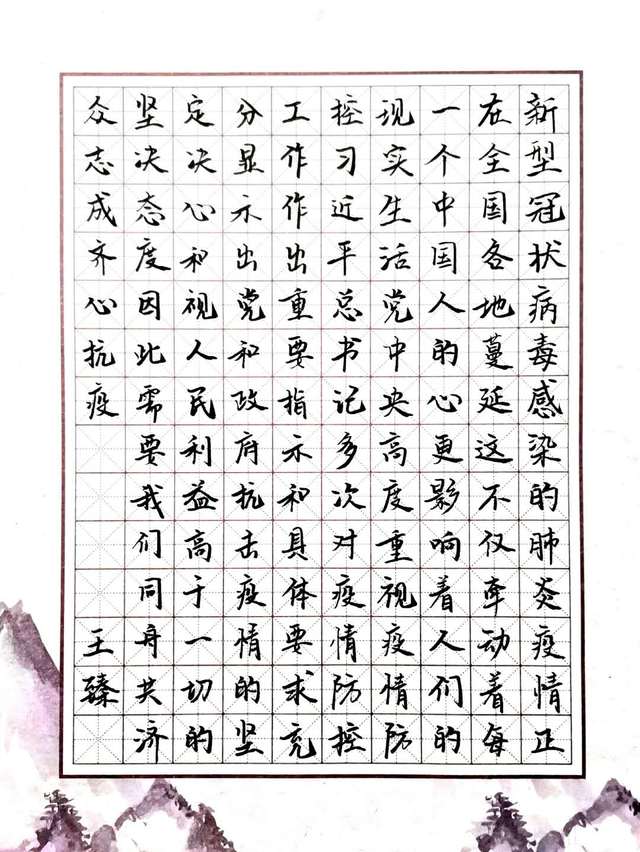 新型冠状病毒感染的肺炎疫情正
在全国各地蔓延这不仅牵动着每
一个中国人的心更影响着人们的
现实生活党中央高度重视疫情防
控习近平总书记多次对疫情防控
工作作出重要指示和具体要求充
分显示出党和政府抗击疫情的坚
定决心和视人民利益高于一切的
坚决态度因此需要我们同舟共济
众志成齐心抗疫
王臻